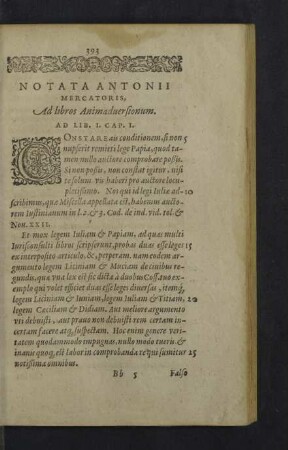 393
NOTATA ANTONII
MERCATORIS,
Ad libros Animaduersionum.
AD LIB. I. CAP. I.
CONSTARE an conditionem, si non 5
nupserit remitti lege Papia, quod ta-
men nullo auctore comprobare possis.
Si non potes, non constat igitur, nisi
te solum tu haberi pro auctore locu-
pletissimo. Nos qui id legi Iuliæ ad- 10
scribimus, quæ Miscella appellata est, habemus aucto-
rem Iustinianum in l. 2. & 3. Cod. de ind. vid. tol. &
Nou. XXII.
Et mox legem Iuliam & Papiam, ad quas multi
Iurisconsulti libros scripserunt, probas duas esse leges 15
ex interposito articulo, &, perperam. nam eodem ar-
gumento legem Liciniam & Muciam de ciuibus re-
gundo, quæ vna lex est sic dicta à duobus Coss. tuo ex-
emplo qui volet efficiet duas esse leges diuersas, itemq́,
legem Liciniam & Iuniam, legem Iuliam & Titiam, 20
legem Cæciliam & Didiam. Aut meliore argumento
vti debuisti, aut prauo non debuisti rem certam in-
certam facere atq́, suspectam. Hoc enim genere veri-
tatem quodammodo impugnas, nullo modo tueris. &
inanis quoq́, est labor in comprobanda re qui sumitur 25
notissima omnibus.
Bb 5 Falso